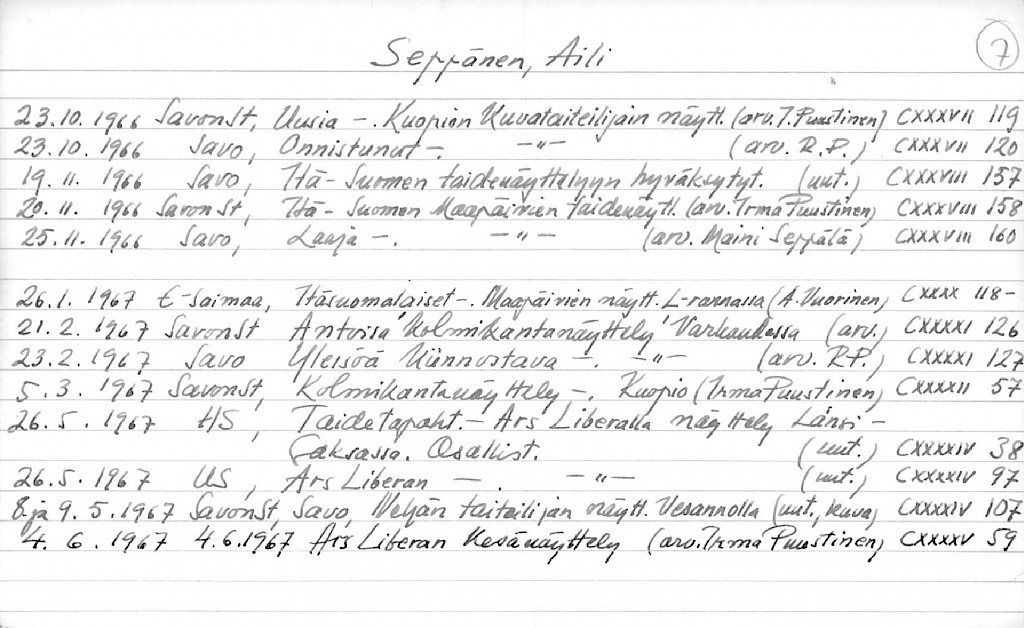 7
Seppänen, Aili
23.10.1966 SavonSt, Uusia -. Kuopion Kuvataiteilijain näytt. (arv. I. Puustinen) CXXXVII 119
23.10.1966 Savo, Onnistunut -. -"- (arv. R.P.) CXXXVII 120
19.11.1966 Savo, Itä-Suomen taidenäyttelyyn hyväksytyt. (uut.) CXXXVIII 157
20.11.1966 SavonSt, Itä-Suomen Maapäivien taidenäytt. (arv. Irma Puustinen) CXXXVIII 158
25.11.1966 Savo, Laaja -. -"- (arv. Maini Seppälä) CXXXVIII 160
26.1.1967 E-Saimaa, Itäsuomalaiset -. Maapäivien näytt. L-rannassa (A. Vuorinen) CXXXX 118-
21.2.1967 SavonSt Antoisa "Kolmikantanäyttely" Varkaudessa (arv.) CXXXXI 126
23.2.1967 Savo Yleisöä kiinnostava -. -"- (arv. R.P.) CXXXXI 127
5.3.1967 SavonSt, Kolmikantanäyttely -. Kuopio (Irma Puustinen) CXXXXII 57
26.5.1967 HS, Taidetapaht. - Ars Liberalla näyttely Länsi-
Saksassa. Osallist. (uut.) CXXXXIV 38
26.5.1967 US, Ars Liberan -. -"- (uut.) CXXXXIV 97
8. ja 9.5.1967 SavonSt, Savo, Neljän taiteilijan näytt. Vesannolla (uut., kuva) CXXXXIV 107
4.6.1967 4.6.1967 Ars Liberan Kesänäyttely (arv. Irma Puustinen) CXXXXV 59